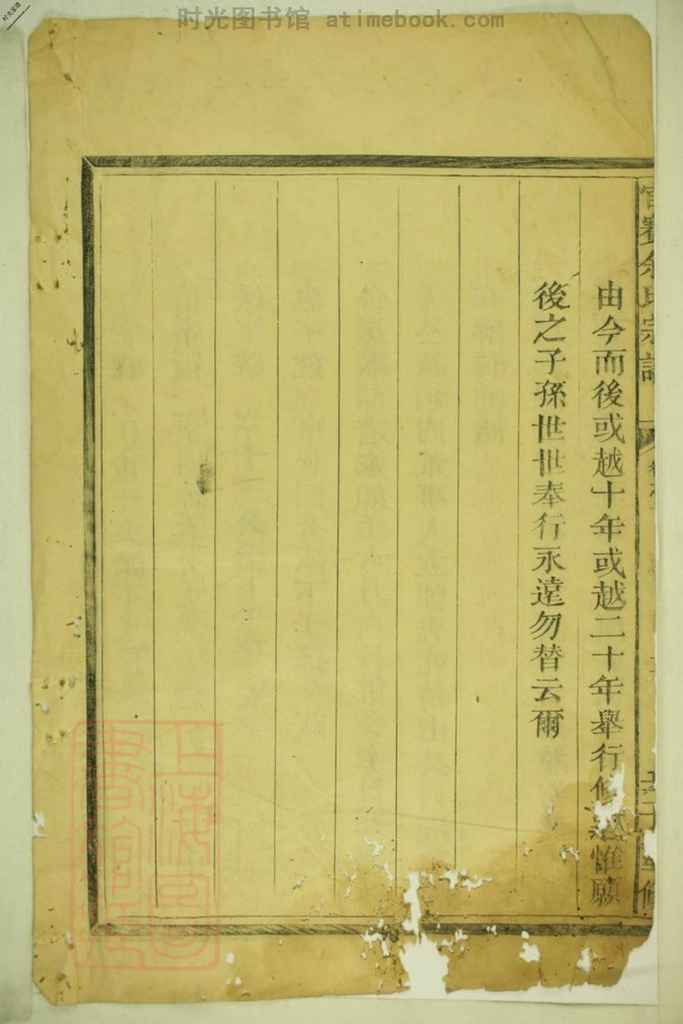 时光图书馆 atimebook.com
余氏宗譜
由今而後或越十年或越二十年舉行修惟願
後之子孫世世奉行永遠勿替云爾